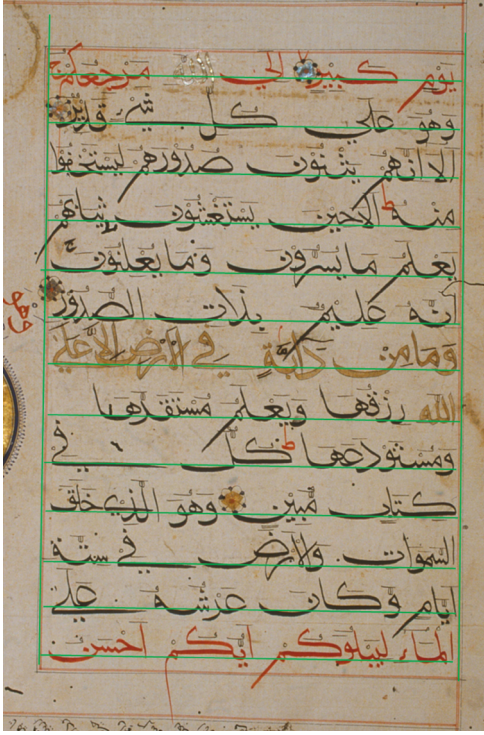 يوم كبير الي الله مرجعكم
وهو علي كل شئ قدير
الا انهم يثنون صدورهم ليستخفوا
منه ط الاحين يستغشون ثيابهم
يعلم ما يسرون وما يعلنون
انه عليم بذات الصدور
وما من دابة في الارض الا علي
الله رزقها ويعلم مستقرها
ومستودعها ط كل في
كتاب مبين وهو الذي خلق
السموات والارض في ستة
ايام وكان عرشه علي
الماء ليبلوكم ايكم احسن